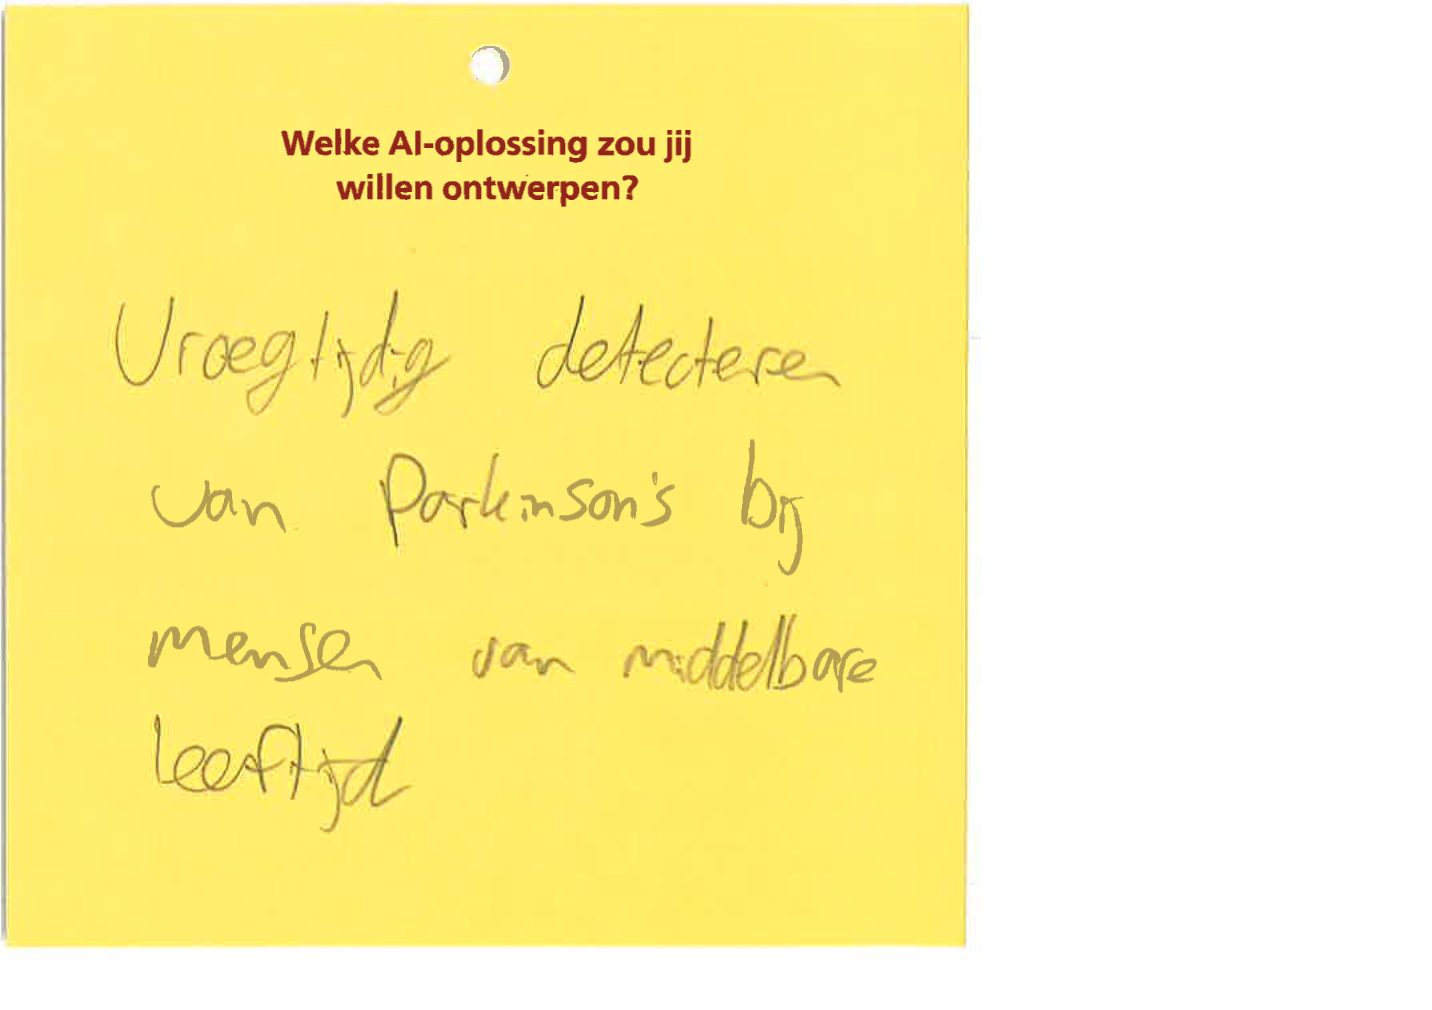 Welke AI-oplossing zou jij
willen ontwerpen?
Vroegtijdig detecteren
van Parkinson's bij
mensen van middelbare
leeftijd